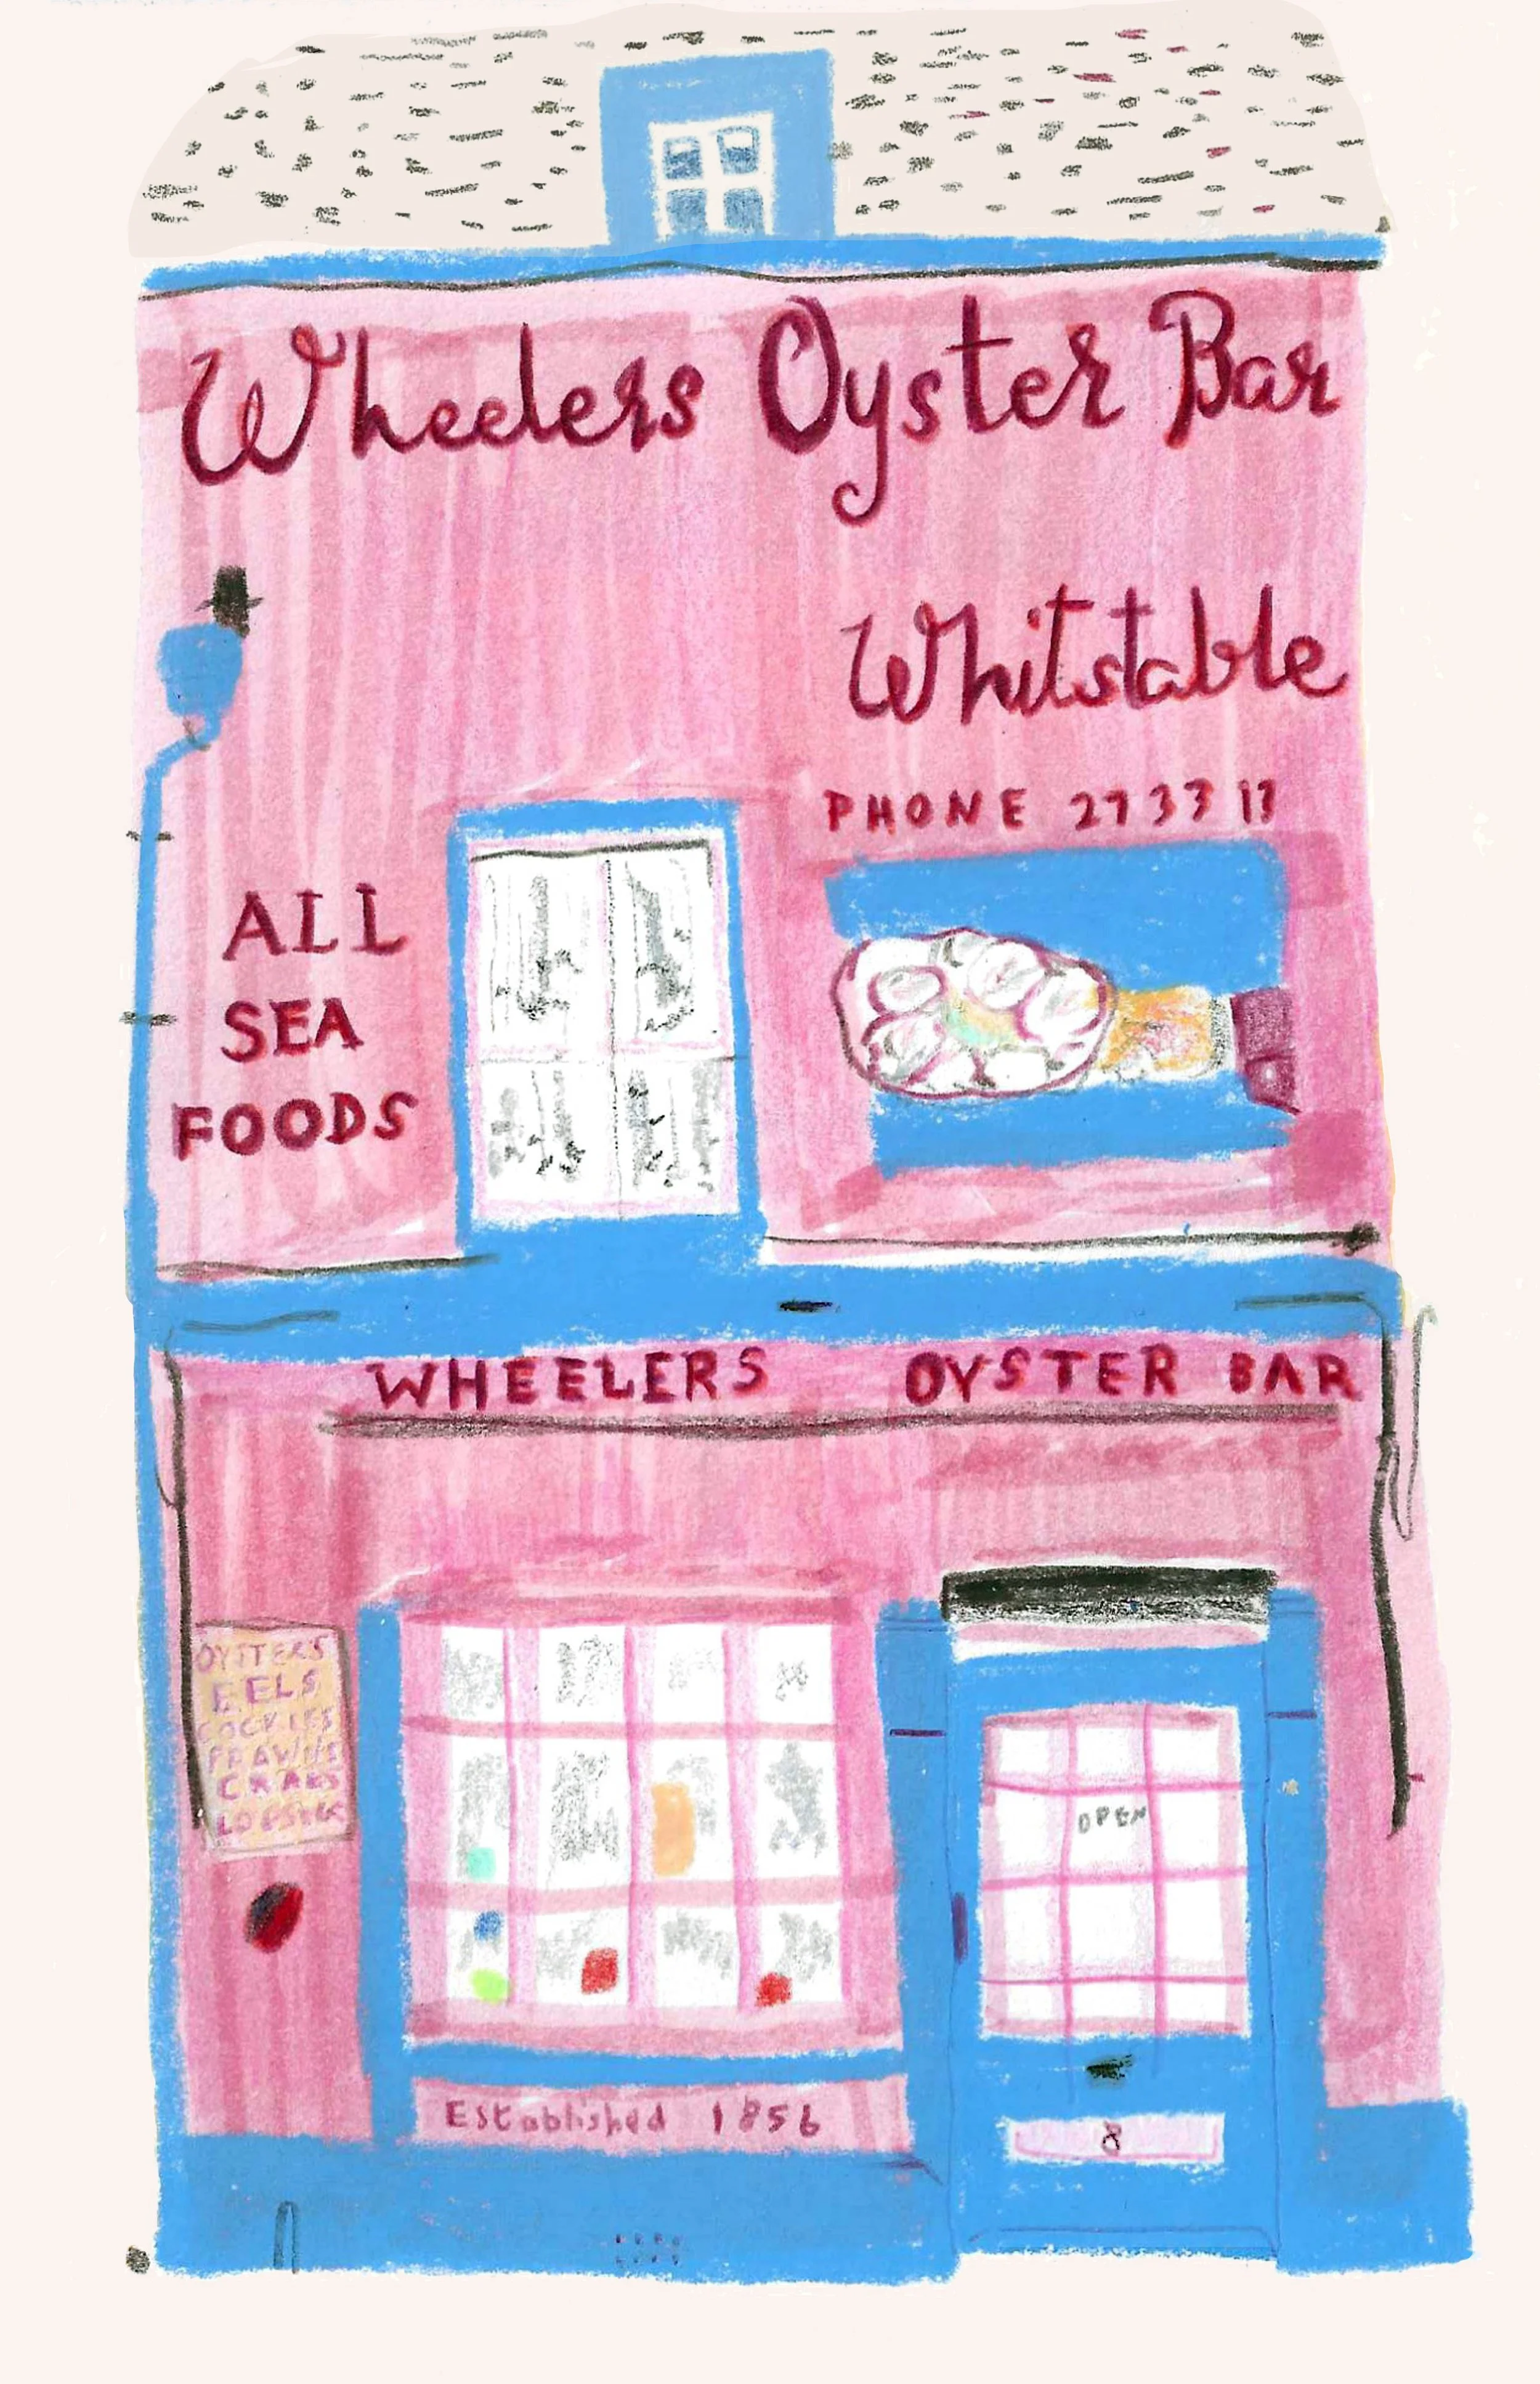 Wheelers Oyster Bar
Whitstable
PHONE 273311
ALL
SEA
FOODS
WHEELERS OYSTER BAR
OYSTERS
EELS
COCKLES
PRAWNS
CRABS
OPEN
Established 1856
8